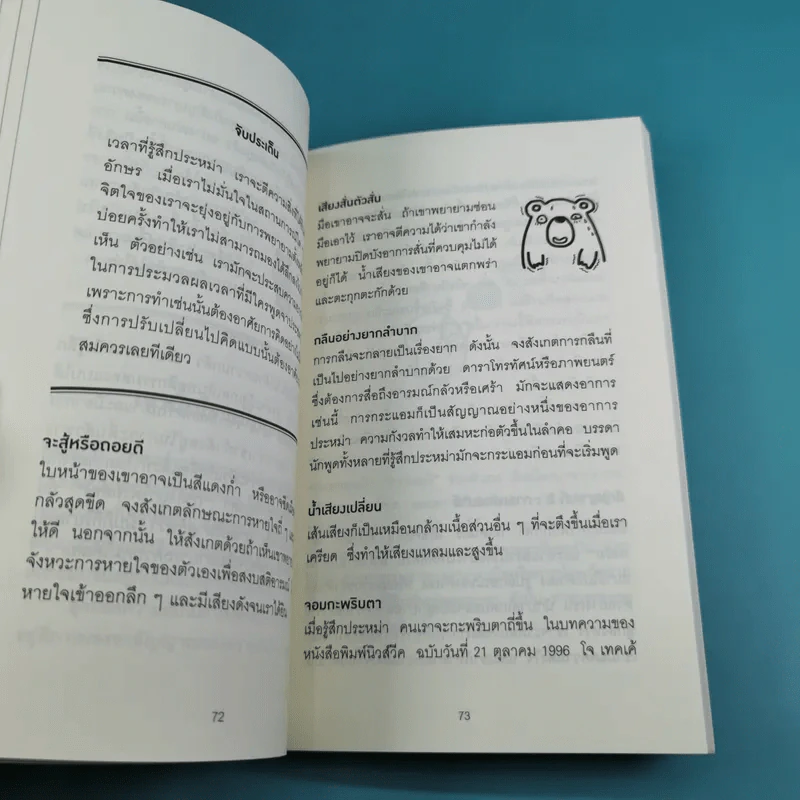 จับประเด็น
เวลาที่รู้สึกประหม่า เราจะตีความสิ่งที่ได้
อักษร เมื่อเราไม่มั่นใจในสถานการณ์
จิตใจของเราจะยุ่งอยู่กับการพยายาม
บ่อยครั้งทำให้เราไม่สามารถมองได้ลึก
เห็น ตัวอย่างเช่น เรามักจะประสบความ
ในการประมวลผลเวลาที่มีใครพูดจา
เพราะการทำเช่นนั้นต้องอาศัยการคิดอย่าง
ซึ่งการปรับเปลี่ยนไปคิดแบบนั้นต้อง
สมควรเลยทีเดียว
จะสู้หรือถอยดี
ใบหน้าของเขาอาจเป็นสีแดงก่ำ หรืออาจซีด
กลัวสุดขีด จงสังเกตลักษณะการหายใจถี่ ๆ
ให้ดี นอกจากนั้น ให้สังเกตด้วยถ้าเห็นเขา
จังหวะการหายใจของตัวเองเพื่อสงบสติอารมณ์
หายใจเข้าออกลึก ๆ และมีเสียงดังจนเราได้ยิน
72
เสียงสั่นตัวสั่น
มือเขาอาจจะสั่น ถ้าเขาพยายามซ่อน
มือเอาไว้ เราอาจตีความได้ว่าเขากำลัง
พยายามปิดบังอาการสั่นที่ควบคุมไม่ได้
อยู่ก็ได้ น้ำเสียงของเขาอาจแตกพร่า
และตะกุกตะกักด้วย
กลืนอย่างยากลำบาก
การกลืนจะกลายเป็นเรื่องยาก ดังนั้น จงสังเกตการกลืนที่
เป็นไปอย่างยากลำบากด้วย ดาราโทรทัศน์หรือภาพยนตร์
ซึ่งต้องการสื่อถึงอารมณ์กลัวหรือเศร้า มักจะแสดงอาการ
เช่นนี้ การกระแอมก็เป็นสัญญาณอย่างหนึ่งของอาการ
ประหม่า ความกังวลทำให้เสมหะก่อตัวขึ้นในลำคอ บรรดา
นักพูดทั้งหลายที่รู้สึกประหม่ามักจะกระแอมก่อนที่จะเริ่มพูด
น้ำเสียงเปลี่ยน
เส้นเสียงก็เป็นเหมือนกล้ามเนื้อส่วนอื่น ๆ ที่จะตึงขึ้นเมื่อเรา
เครียด ซึ่งทำให้เสียงแหลมและสูงขึ้น
จอมกะพริบตา
เมื่อรู้สึกประหม่า คนเราจะกะพริบตาถี่ขึ้น ในบทความของ
หนังสือพิมพ์นิวส์วีค ฉบับวันที่ 21 ตุลาคม 1996 โจ เทคเค้
73